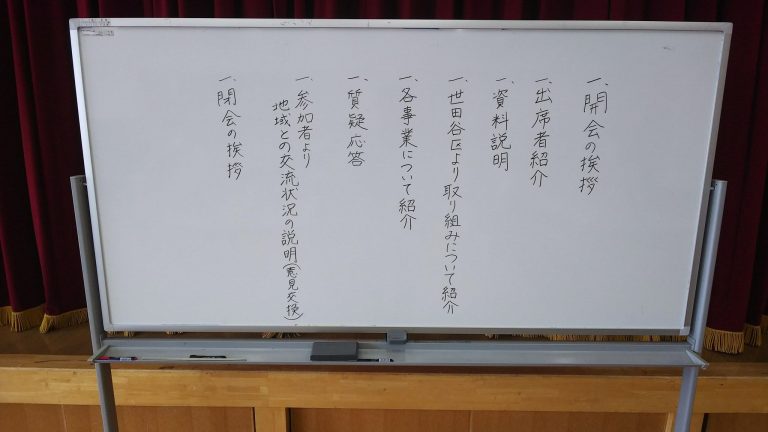 一、開会の挨拶
一、出席者紹介
一、資料説明
一、世田谷区より取り組みについて紹介
一、各事業について紹介
一、質疑応答
一、参加者より
地域との交流状況の説明(意見交換)
一、閉会の挨拶